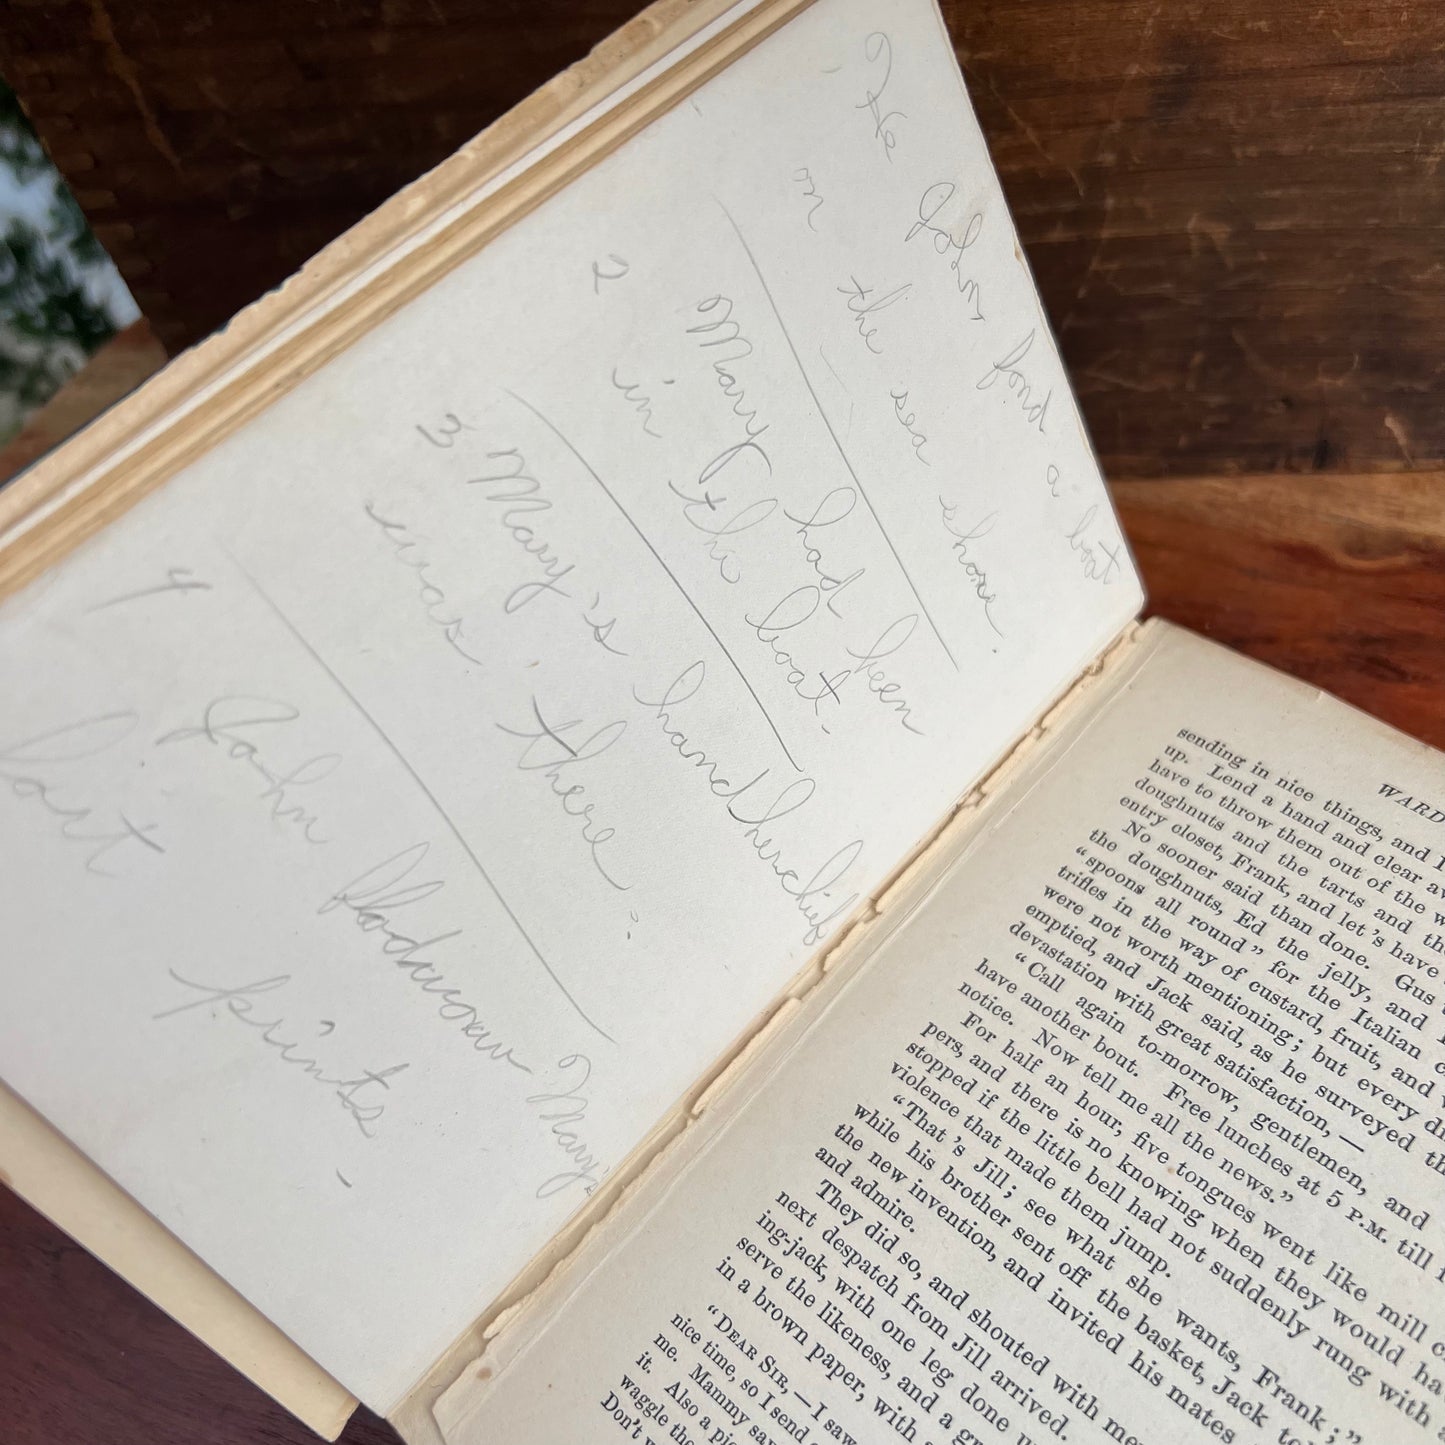 John fond a boat
on the sea shore.
2 Mary had been
in the boat.
3 Mary's handherchief
was there.
4 John Mary's
last prints
WARD
sending in nice things, and I
up. Lend a hand and clear aw
have to throw them out of the w
doughnuts and the tarts and the
entry closet, Frank, and let's have
No sooner said than done. Gus
the doughnuts, Ed the jelly, and
"spoons all round" for the Italian c
trifles in the way of custard, fruit, and w
were not worth mentioning; but every di
emptied, and Jack said, as he surveyed th
devastation with great satisfaction, —
"Call again to-morrow, gentlemen, and
have another bout. Free lunches at 5 P.M. till
notice. Now tell me all the news."
For half an hour, five tongues went like mill c
pers, and there is no knowing when they would ha
stopped if the little bell had not suddenly rung with
violence that made them jump.
"That's Jill; see what she wants, Frank;"
while his brother sent off the basket, Jack to
the new invention, and invited his mates
and admire.
They did so, and shouted with me
next despatch from Jill arrived.
ing-jack, with one leg done u
serve the likeness, and a g
in a brown paper, with
"DEAR SIR, — I saw
nice time, so I send
me. Mammy say
it. Also a pi
waggle the
Don't